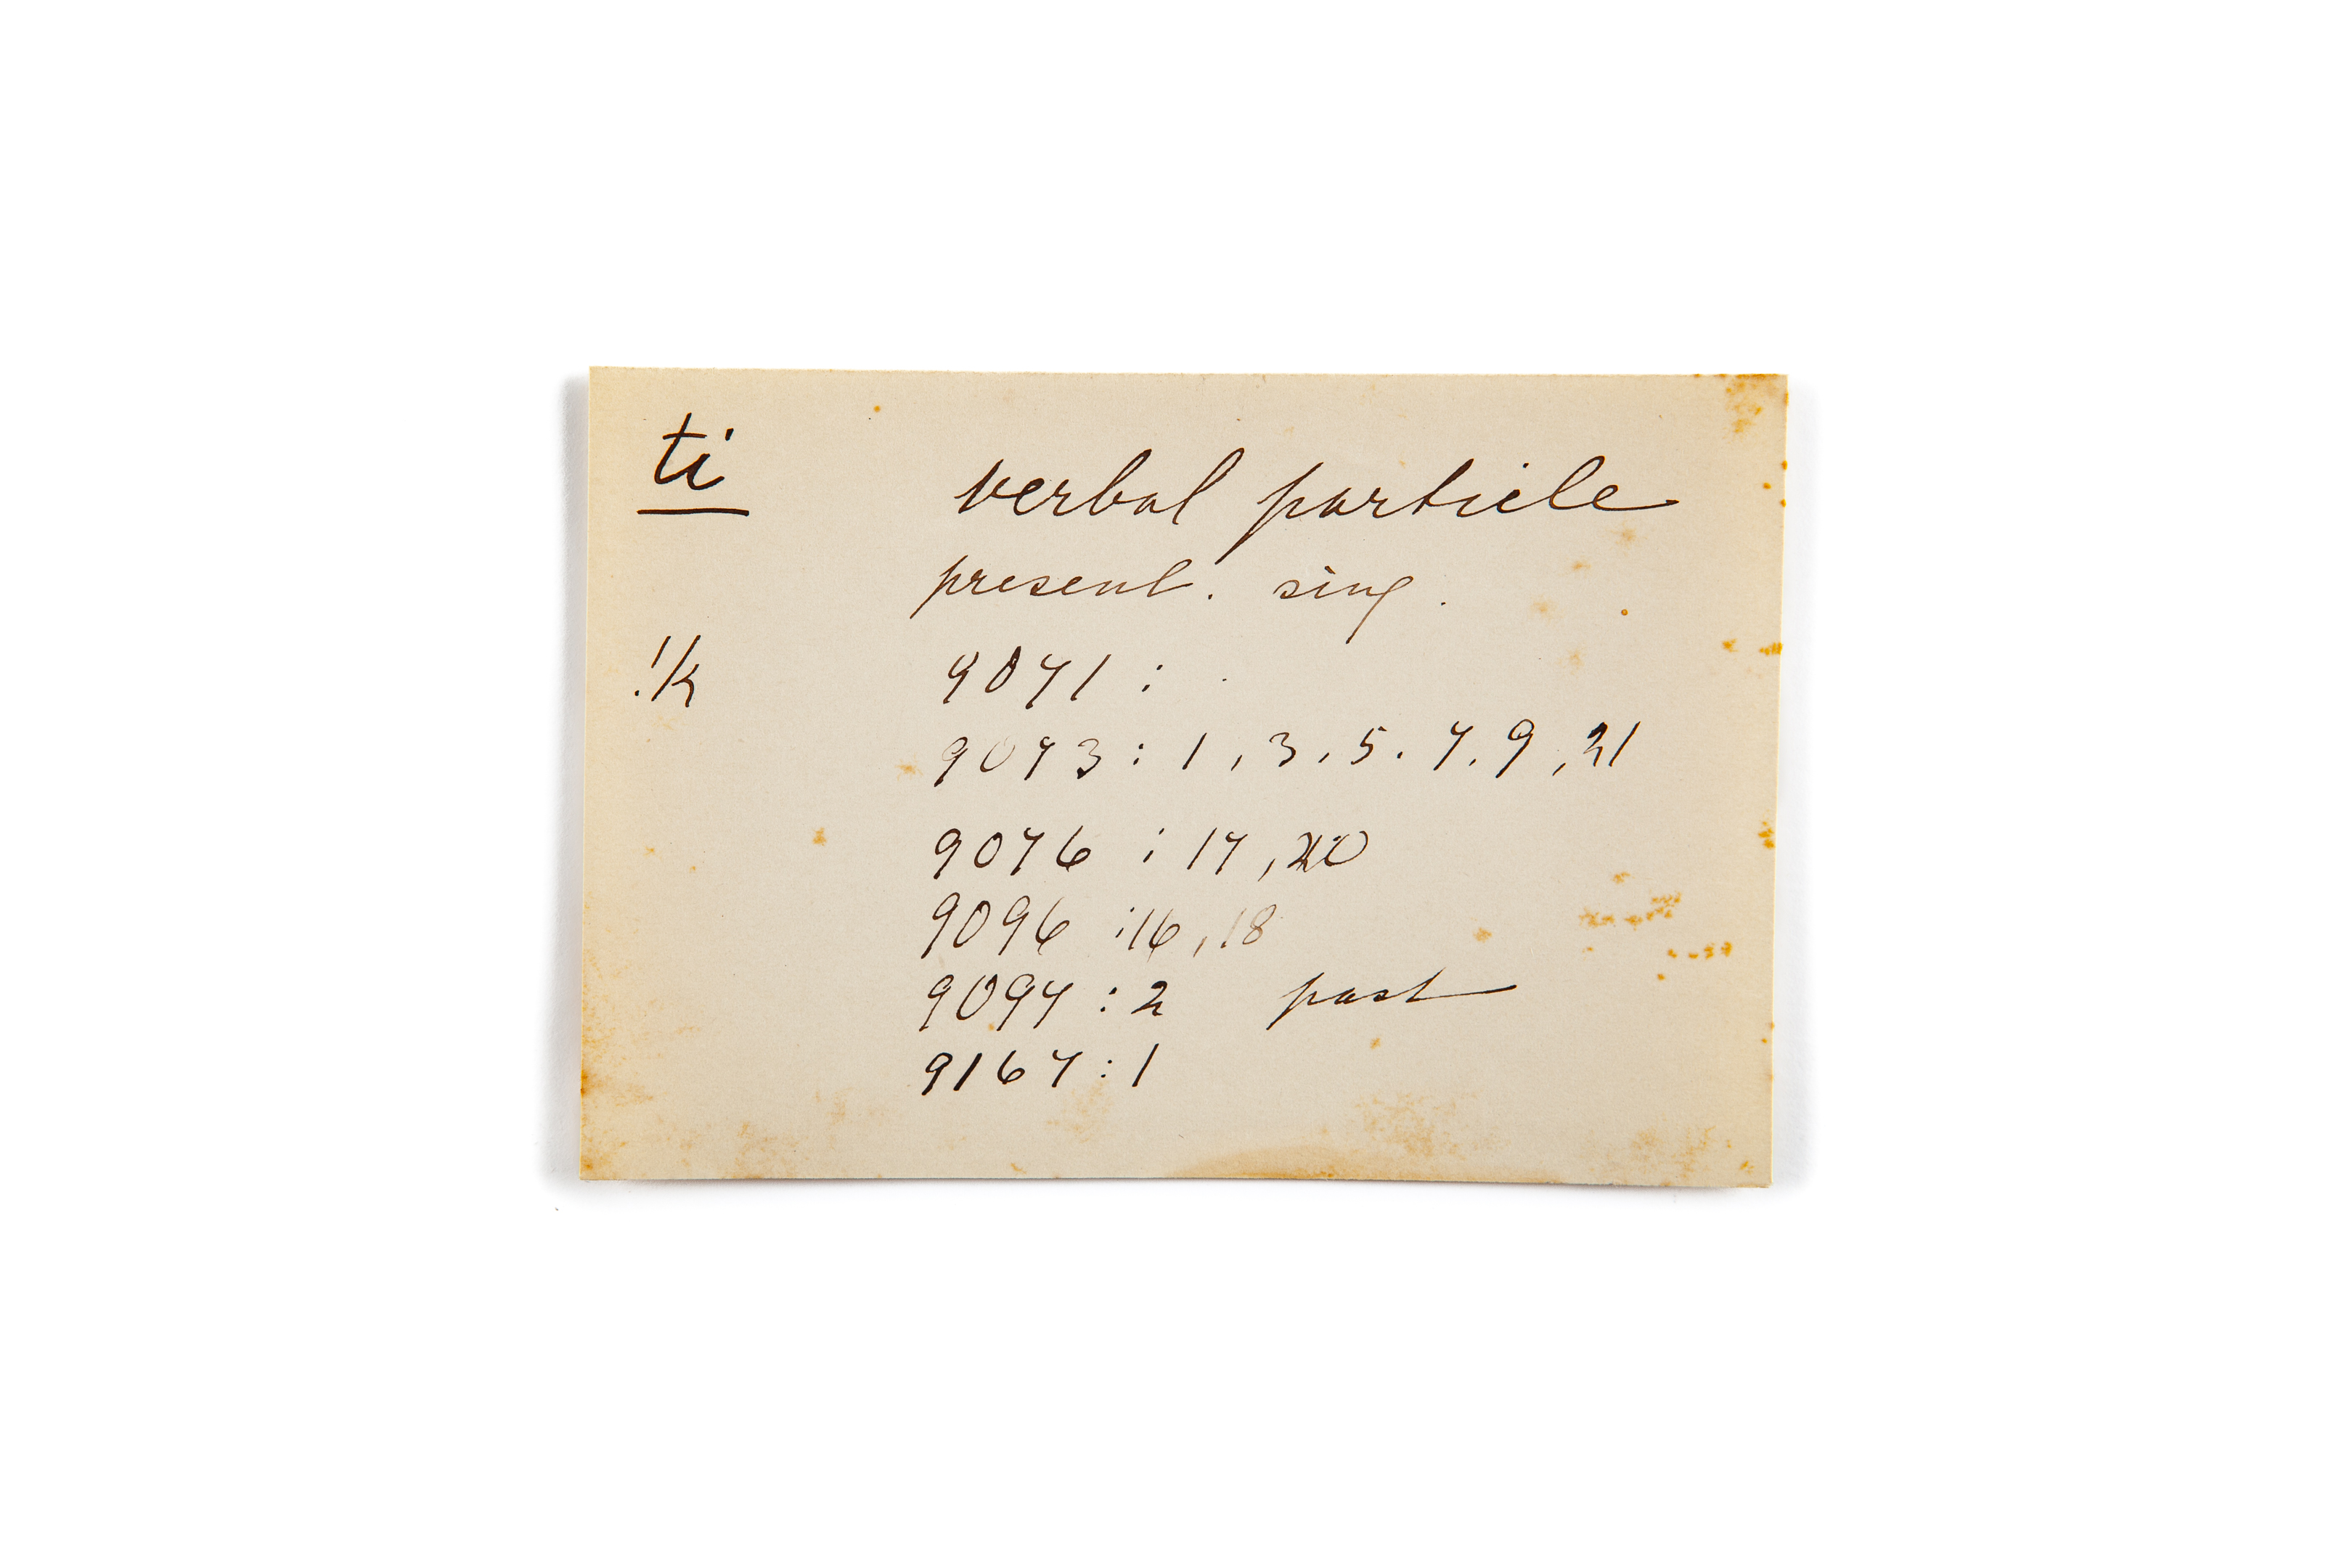 ti verbal particle
present. sing.
!k 9071 :
9073 : 1, 3, 5. 7. 9, 21
9076 : 17, 20
9096 : 16, 18
9097 : 2 past
9167 : 1